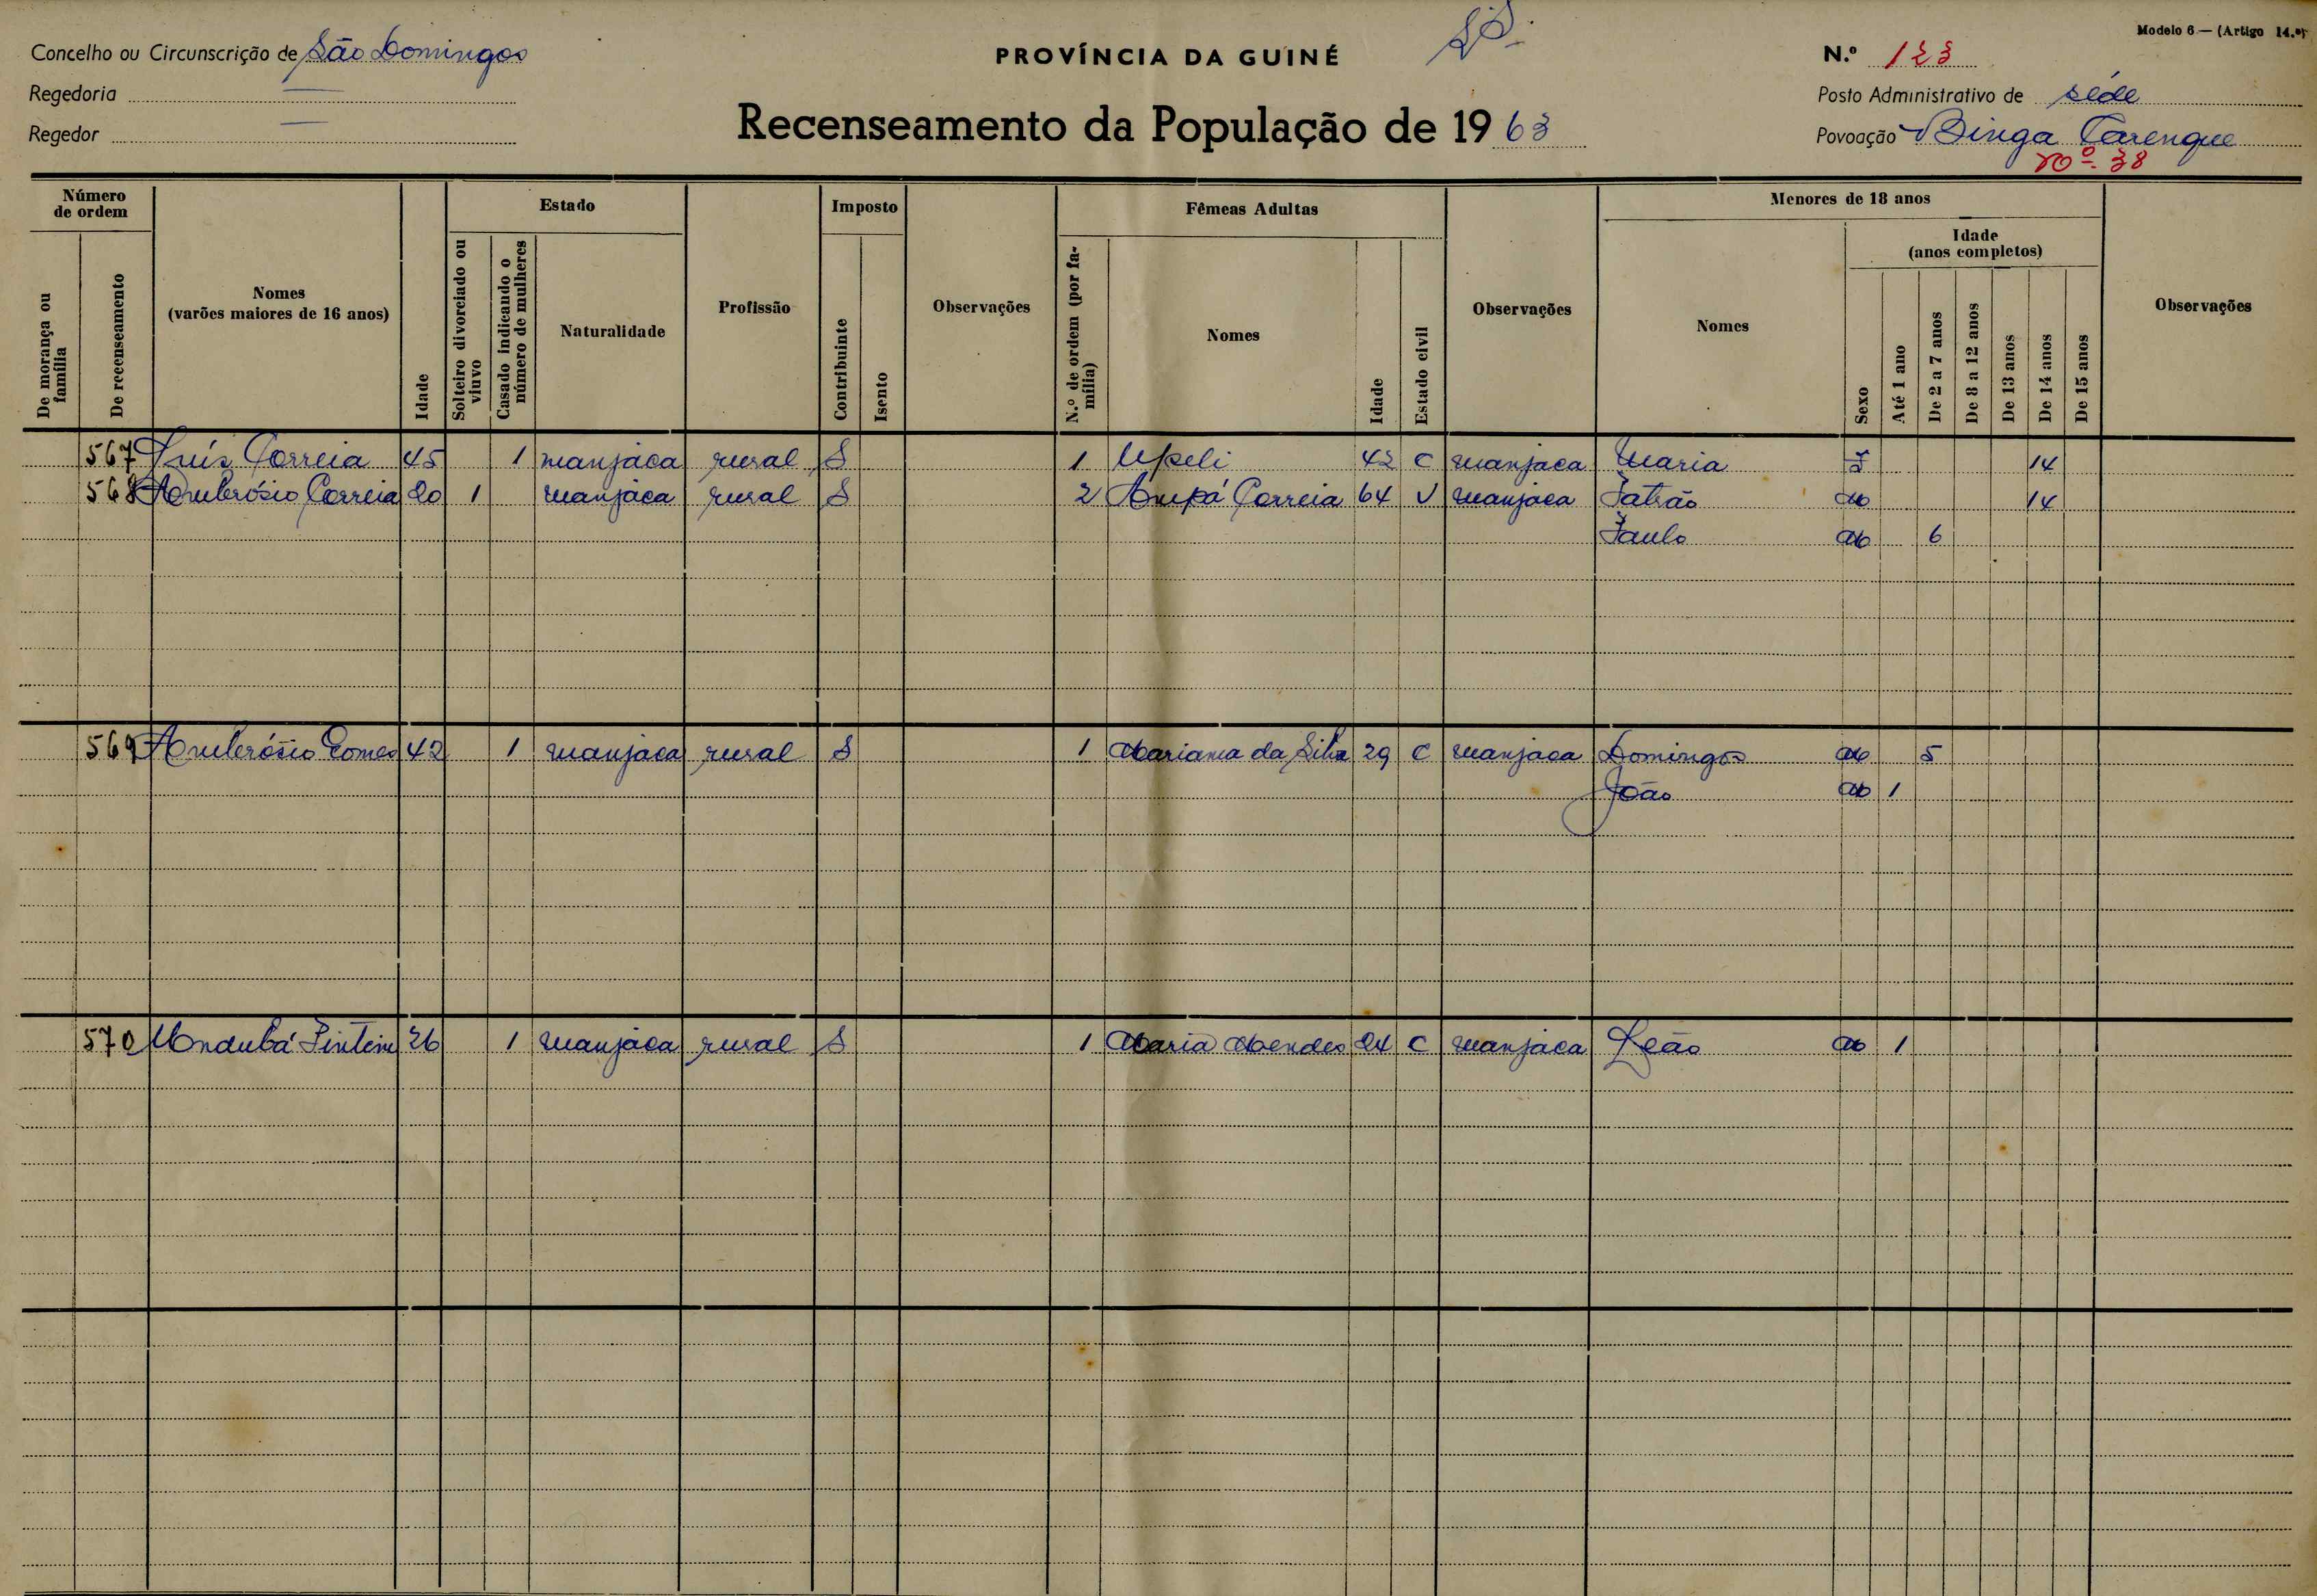 Modelo 6 — (Artigo 14.º)
Concelho ou Circunscrição de São Domingos
PROVÍNCIA DA GUINÉ
N.º 123
Regedoria —
Posto Administrativo de séde
Regedor —
Recenseamento da População de 1963
Povoação Binga Carenque
nº. 38
Número de ordem
De morança ou família
De recenseamento
Nomes (varões maiores de 16 anos)
Idade
Estado
Solteiro divorciado ou viuvo
Casado indicando o número de mulheres
Naturalidade
Profissão
Imposto
Contribuinte
Isento
Observações
Fêmeas Adultas
N.º de ordem (por família)
Nomes
Idade
Estado civil
Observações
Menores de 18 anos
Nomes
Sexo
Idade (anos completos)
Até 1 ano
De 2 a 7 anos
De 8 a 12 anos
De 13 anos
De 14 anos
De 15 anos
Observações
567 Luís Correia 45 1 manjaca rural S 1 Upeli 42 C manjaca Maria F 14
568 Ambrósio Correia 20 1 manjaca rural S 2 Ampá Correia 64 V manjaca Fatrão M 14
Paulo M 6
569 Ambrósio Gomes 42 1 manjaca rural S 1 Mariama da Silva 29 C manjaca Domingos M 5
João M 1
570 26 1 manjaca rural S 1 Maria Mendes 24 C manjaca Leão M 1